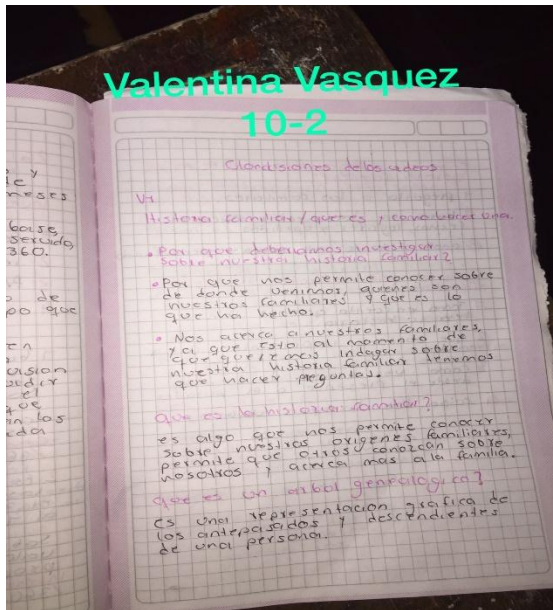 Valentina Vasquez
10-2
y
neses
base
servida
360.
de
po que
en
el
que
en los
de los videos
V1
Historia familiar / que es, como hacer una.
• Por que deberiamos investigar
sobre nuestra historia familiar?
• Por que nos permite conocer sobre
de donde venimos, quienes son
nuestros familiares y que es lo
que ha hecho.
• Nos acerca a nuestros familiares,
ya que esto al momento de
que indagar sobre
nuestra historia familiar tenemos
que hacer preguntas.
que es la historia familiar?
es algo que nos permite conocer
sobre nuestras origenes familiares,
permite que otros conozcan sobre
nosotros y acerca mas a la familia.
que es un arbol genealogico?
es una representacion grafica de
los antepasados y descendientes
de una persona.